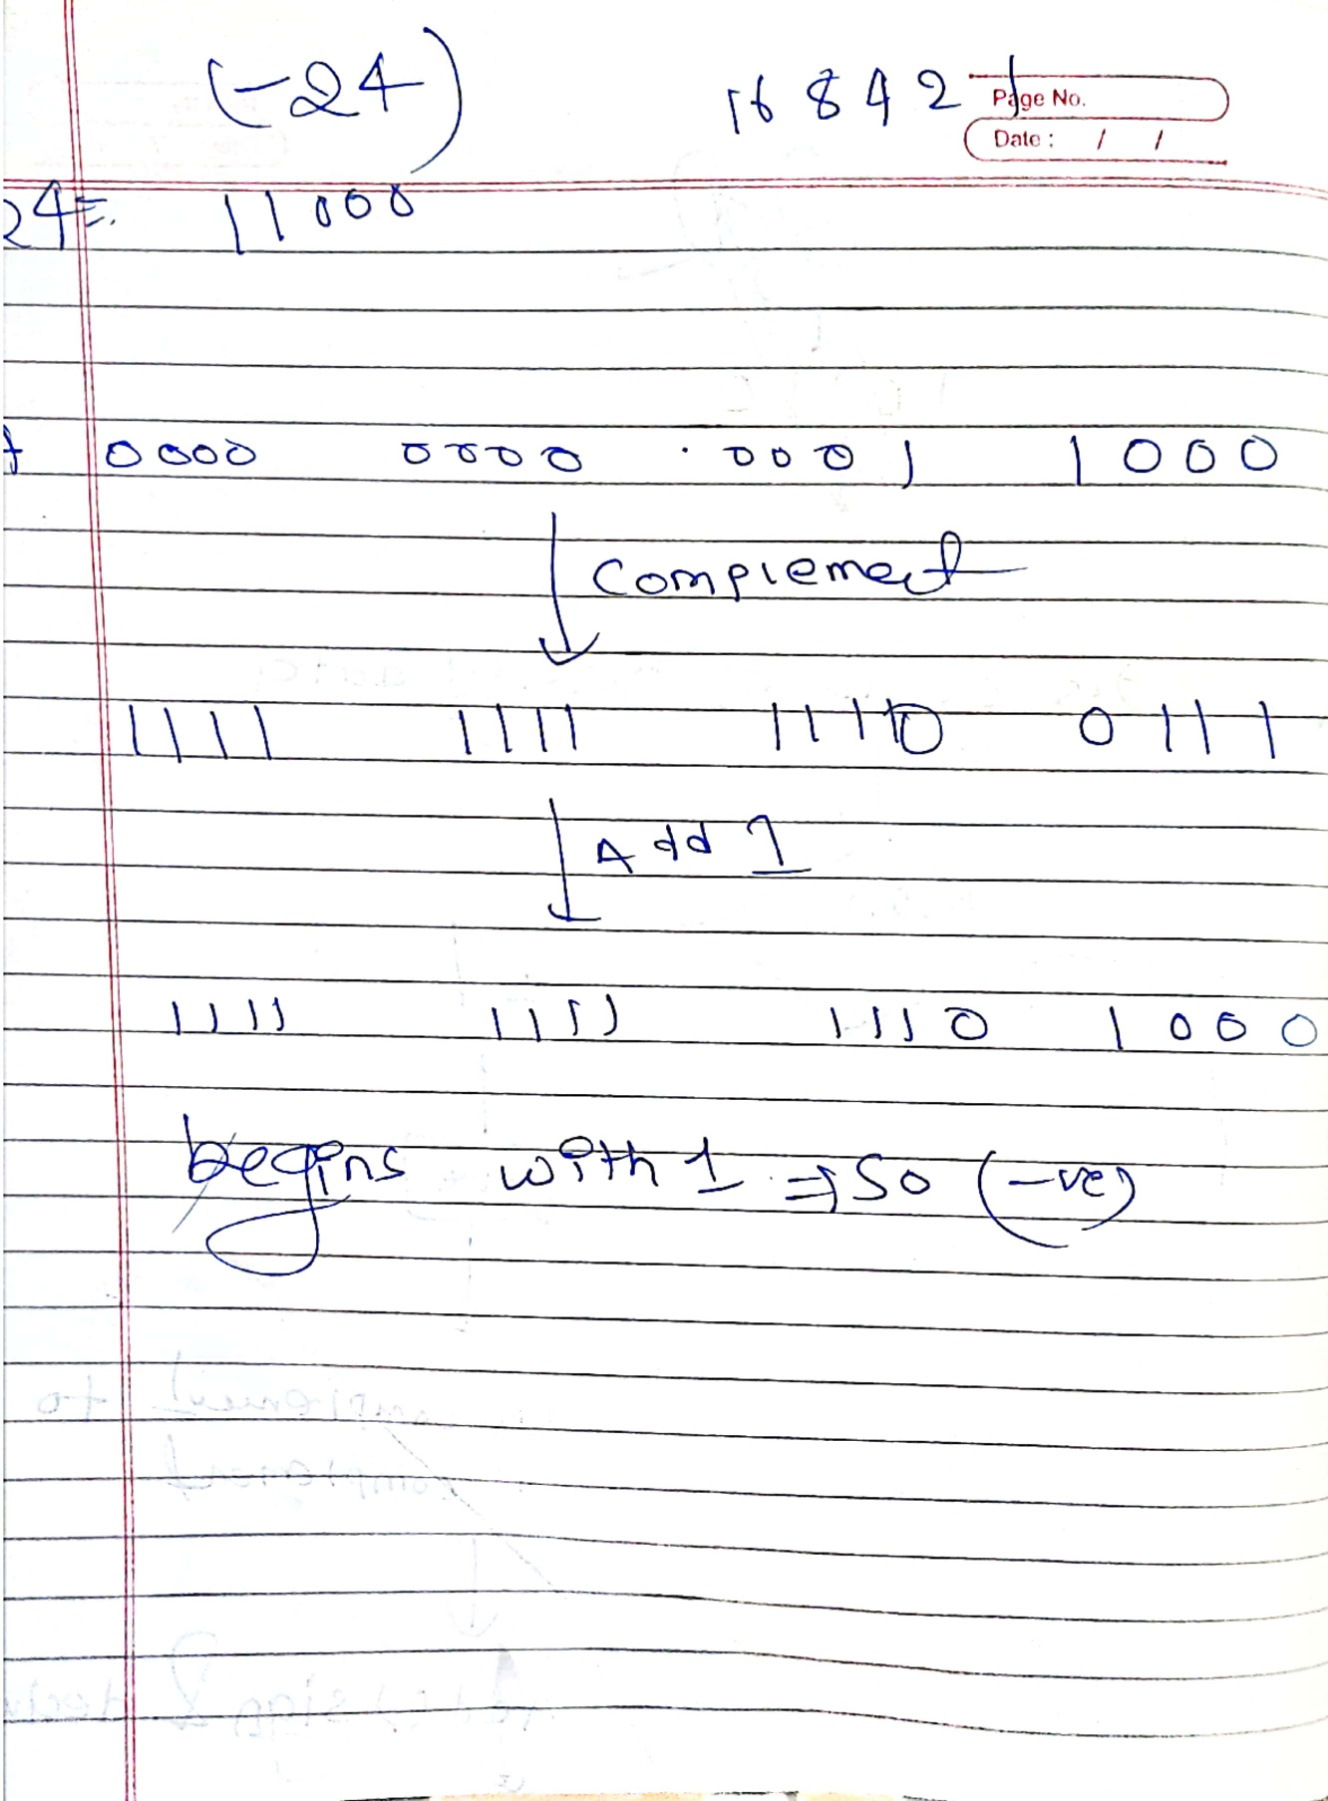 (-24)
16 8 4 2 1
Page No.
Date : / /
24=. 11000
0000 0000 0001 1000
complement
1111 1111 1110 0111
Add 1
1111 1111 1110 1000
begins with 1 ⇒ So (-ve)